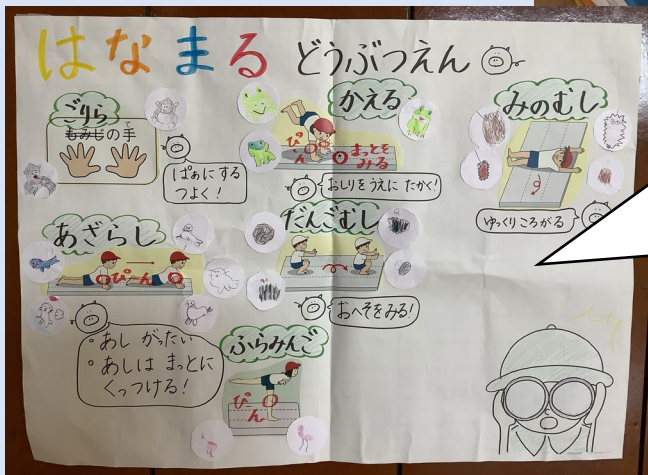 はなまる どうぶつえん
ごりら
もみじの手
ぱあにする
つよく!
かえる
ぴん
まっとを
みる
おしりをうえに たかく!
みのむし
ゆっくりころがる
あざらし
ぴーん
・あし がったい
・あしは まっとに
くっつける!
だんごむし
おへそをみる!
ふらみんご
ぴーん